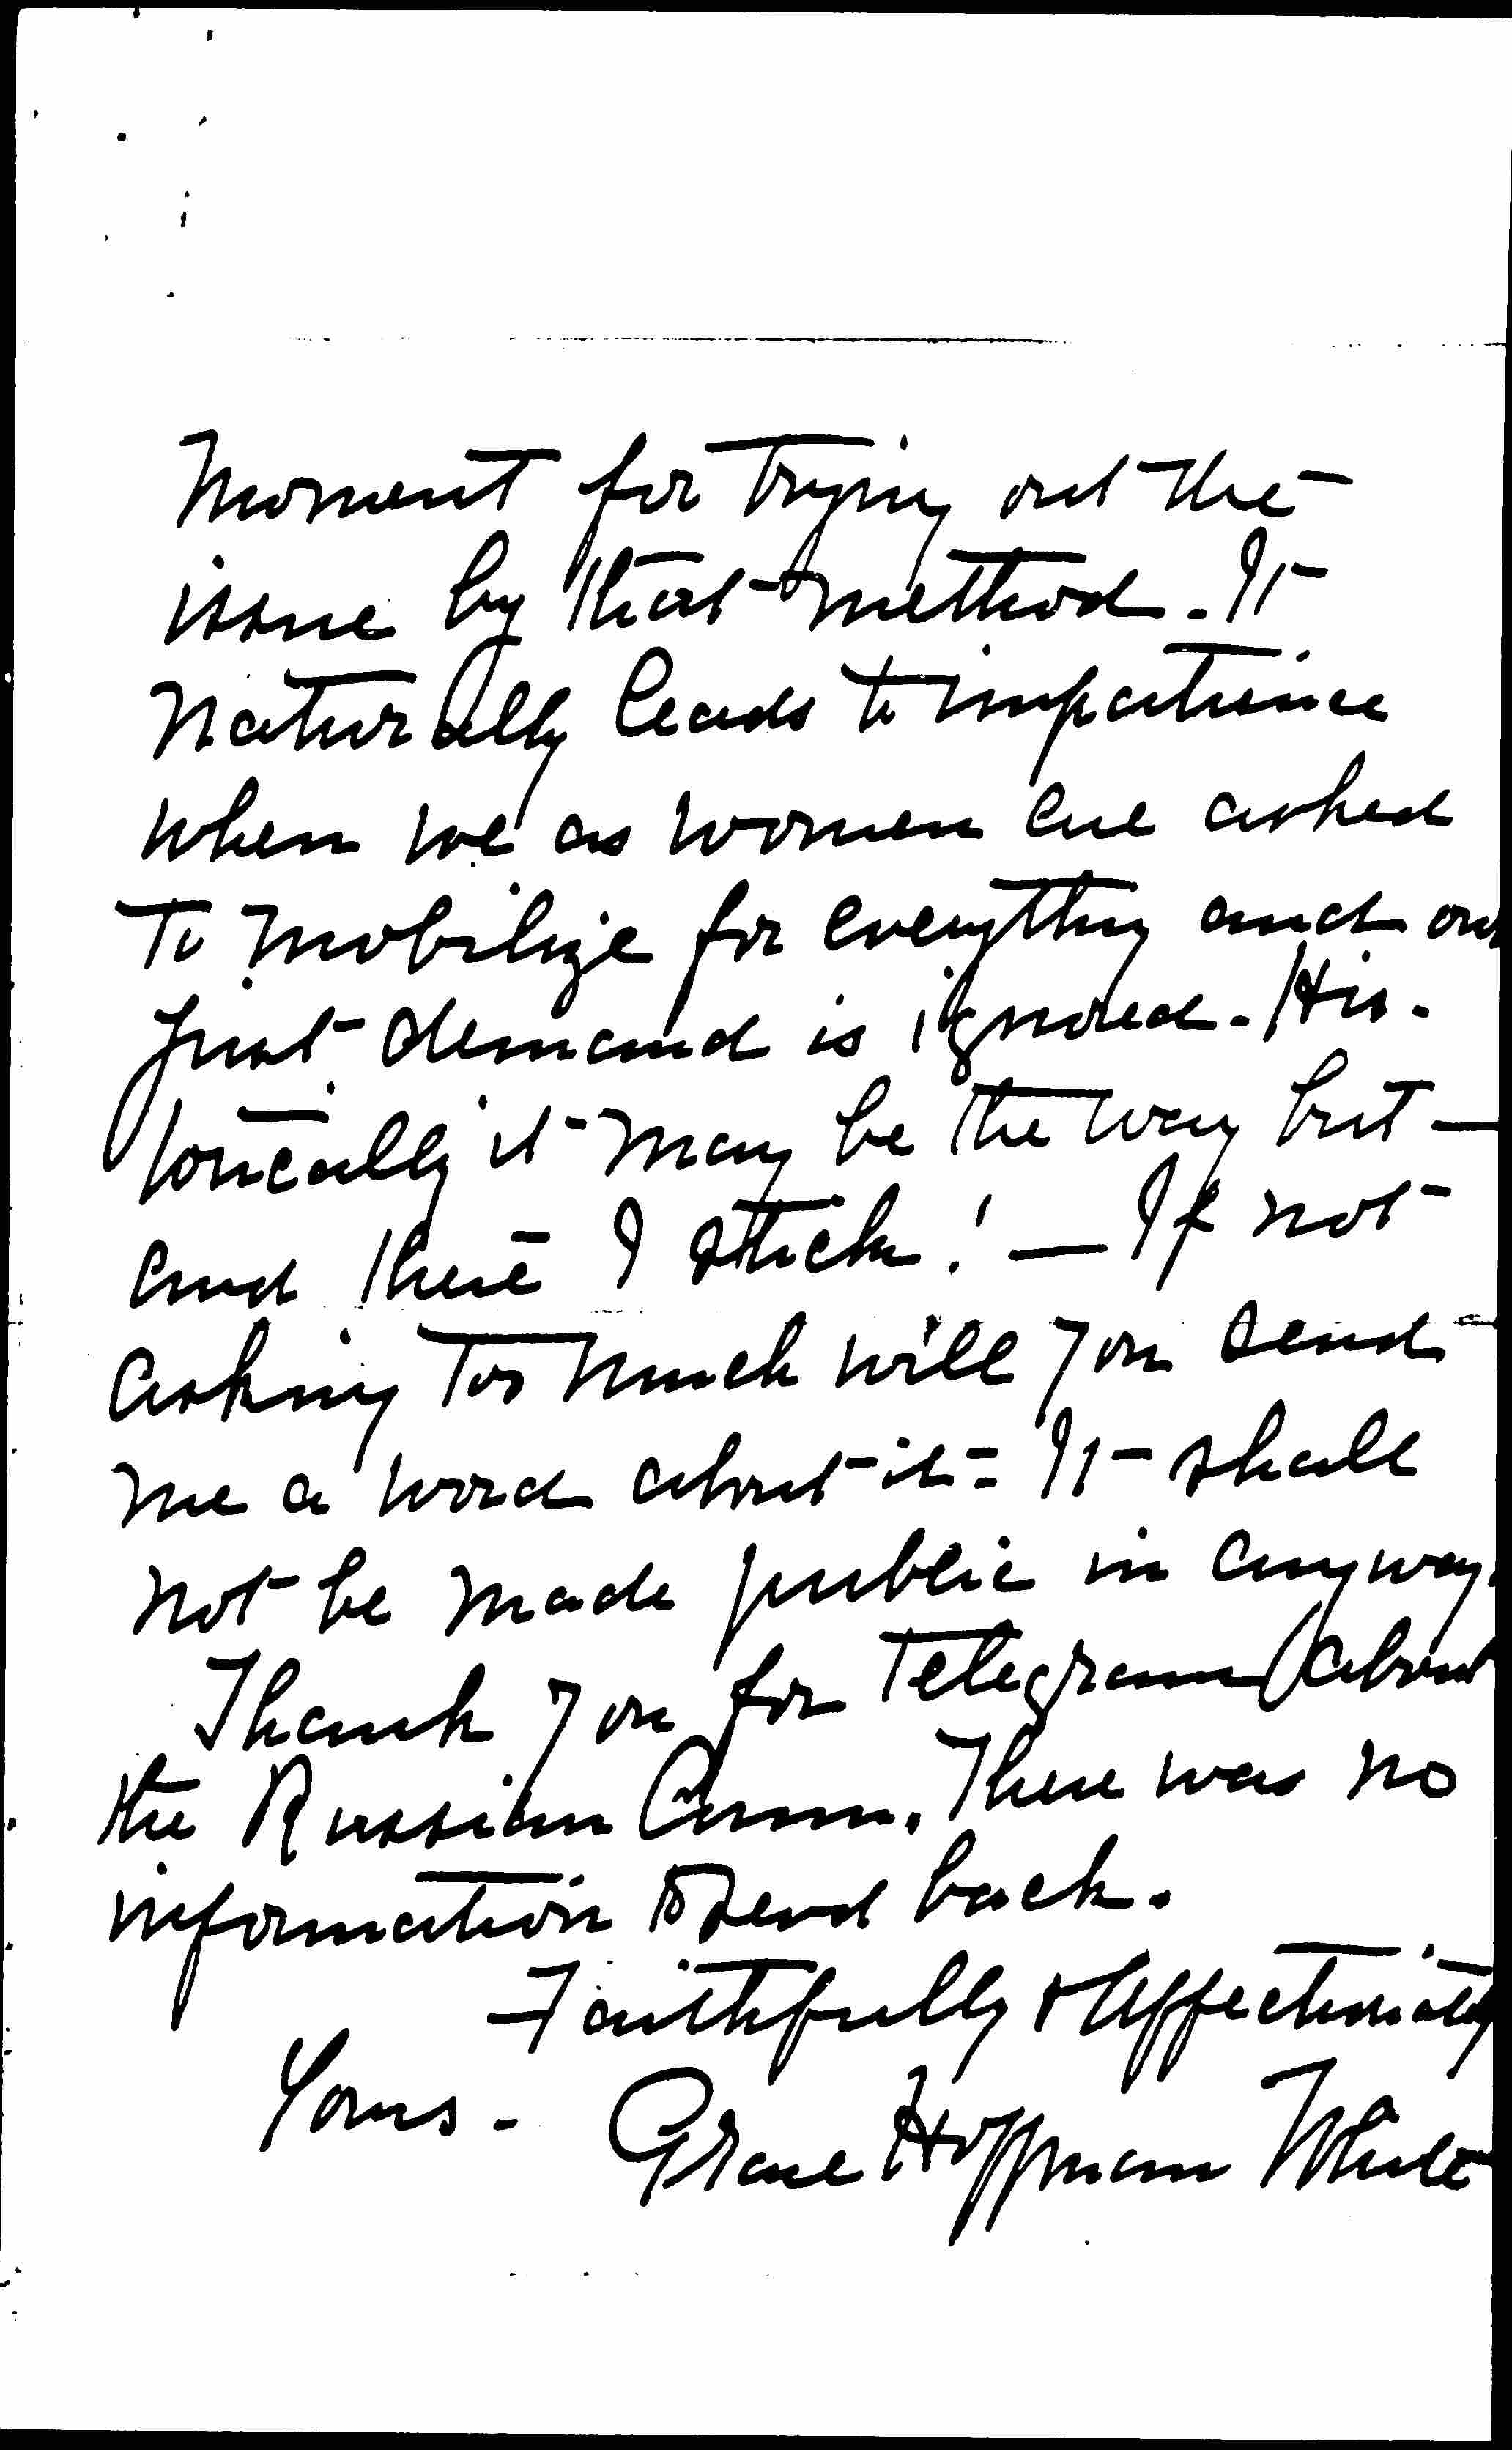 moment for trying out the
issue by that method. It
naturally leads to impatience
when we as women are asked
to mobilize for everything and our
just demand is ignored. His-
torically it may be the way but —
and there I stick! — If not
asking too much will you send
me a word about it = It shall
not be made public in anyway.
Thank you for Telegram about
the Russian Comm. There was no
information to send back.
Faithfully & Affectionately
Yours - Grace Hoffman White